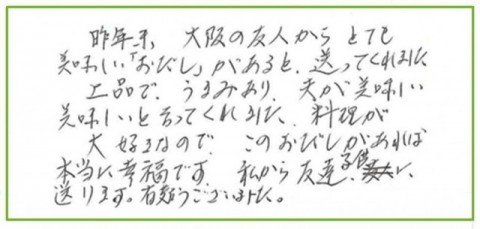 昨年末、大阪の友人から とても
美味しい「おだし」があると、送ってくれました
上品で、うまみあり、夫が美味しい
美味しいと言ってくれました。料理が
大好きなので、このおだしがあれば
本当に幸福です。私から友達、子供に、
送ります。有難うございました。